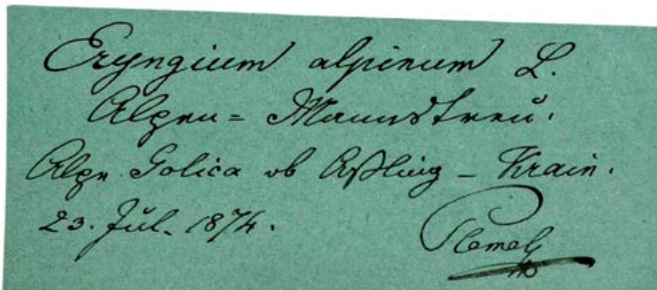 Eryngium alpinum L.
Alpen = Mannstreu.
Alpe Golica ob Aßling – Krain.
23. Jul. 1874.
Plemel